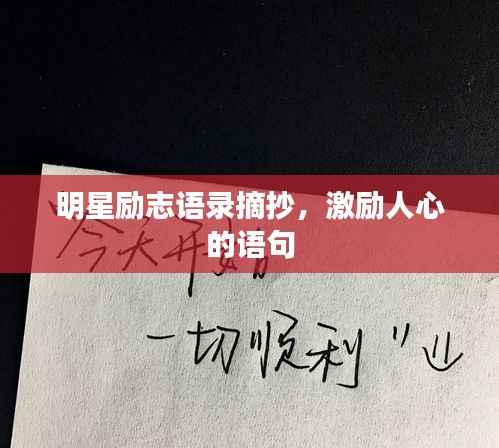 明星励志语录摘抄，激励人心
的语句
“今天开始
一切顺利”